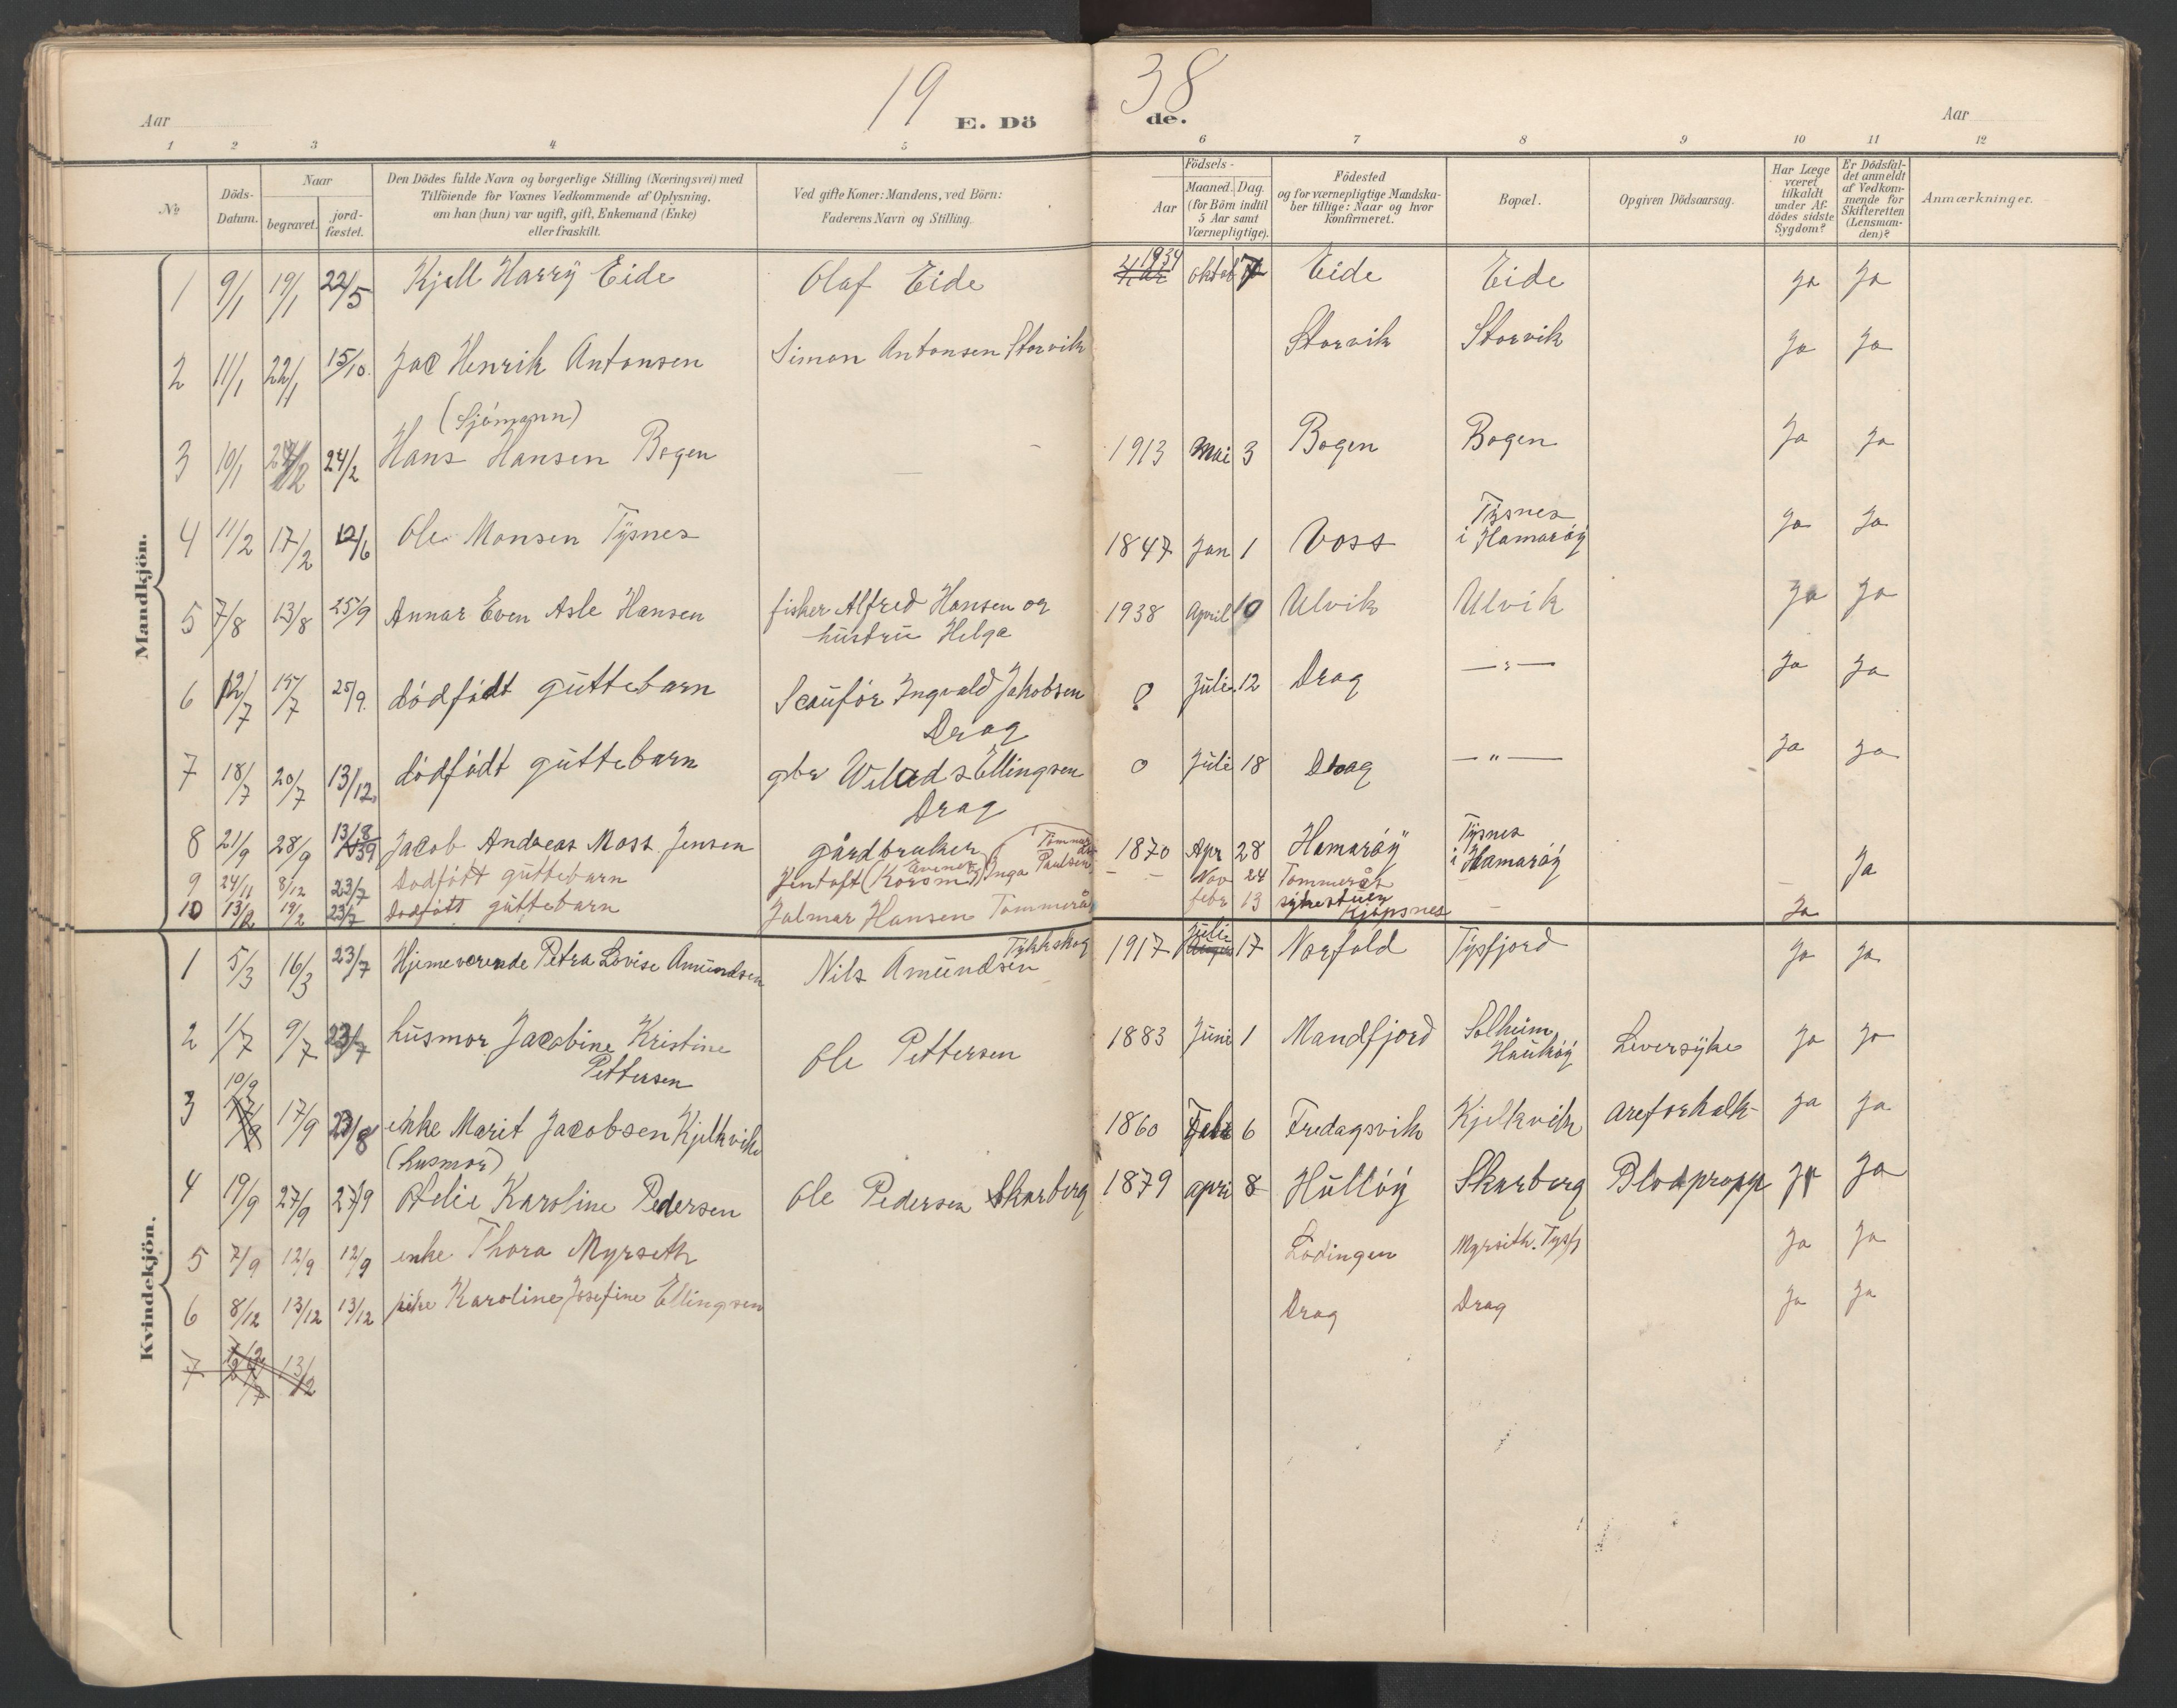 19 38
Aar E. Dö de. Aar
1 2 3 4 5 6 7 8 9 10 11 12
№
Döds-Datum.
Naar
begravet.
jordfæstet.
Den Dödes fulde Navn og borgerlige Stilling (Næringsvei) med
Tilföiende for Voxnes Vedkommende af Oplysning,
om han (hun) var ugift, gift, Enkemand (Enke)
eller fraskilt.
Ved gifte Koner: Mandens, ved Börn:
Faderens Navn og Stilling.
Födsels-
Aar
Maaned. Dag.
(for Börn indtil
5 Aar samt
Værnepligtige).
Födested
og for værnepligtige Mandska-
ber tillige: Naar og hvor
Konfirmeret.
Bopæl.
Opgiven Dödsaarsag.
Har Læge
været
tilkaldt
under Af-
dödes sidste
Sygdom?
Er Dödsfal-
det anmeldt
af Vedkom-
mende for
Skifteretten
(Lensman-
den)?
Anmærkninger.
Mandkjön.
1 9/1 19/1 22/5 Kjell Harrÿ Eide Olaf Eide 4 år 1934 oktob 7 Eide Eide ja ja
2 11/1 22/1 15/10 Jac Henrik Antonsen Simon Antonsen Storvik Storvik Storvik Ja Ja
(Sjómann)
3 10/1 24/2 Hans Hansen Bogen – 1913 Mai 3 Bogen Bogen Ja ja
4 11/2 17/2 12/6 Ole Monsen Tÿsnes 1847 Jan 1 Voss Tÿsnes
i Hamarøÿ ja ja
5 7/8 13/8 25/9 Annar Even Asle Hansen fisker Alfred Hansen og
hustru Helga 1938 April 10 Ulvik Ulvik Ja Ja
6 12/7 15/7 25/9. dódfódt guttebarn Scaufór Ingvald Jakobsen
Drag Juli 12 Drag —"— Ja Ja
7 18/7 20/7 13/12. dódfódt guttebarn gbr Ellingsen
Drag 0 Juli 18 Drag —"— Ja Ja
8 21/9 28/9 13/8 39 Jacob Andreas Moss Jensen gårdbruker 1870 Apr 28 Hamarøÿ Tÿsnes
i Hamarøÿ Ja
9 24/11 8/12 23/7 Dodfótt guttebarn Jentoft ( ) Inga Paulsen – – Nov 24 Tømmerås
10 13/2 19/2 23/7 dodfótt guttebarn Jalmar Hansen Tømmerås febr 13 sÿkestuen
Kjöpsnes – Ja
Kvindekjön.
1 5/3 16/3 23/7 Hjemeverende Petra Lovise Amundsen Nils Amundsen Tÿkkskog 1917 Juli 17 Norfold Tysfjord ja ja
2 1/7 9/7 23/7 husmor Jacobine Kristine
Pettersen Ole Pettersen 1883 Juni 1 Mandfjord Solheim,
Haukøÿ Leversÿke Ja Ja
3 10/9 17/9 23/8 enke Marit Jacobsen Kjelkvik 1860 Feb 6 Fredagsvik Kjelkvik areforkalk- ja ja
(husmor)
4 19/9 27/9 27/9 Otelie Karoline Pedersen Ole Pedersen Skarberg 1879 apri 8 Hulløÿ Skarberg Blodpropp ja ja
5 7/9 12/9 12/9 enke Thora Myrseth Lödingen Myrseth. Tysfj Ja Ja
6 8/12 13/12 13/12 pike Karoline Josefine Ellingsen Drag Drag Ja Ja
7 13/12